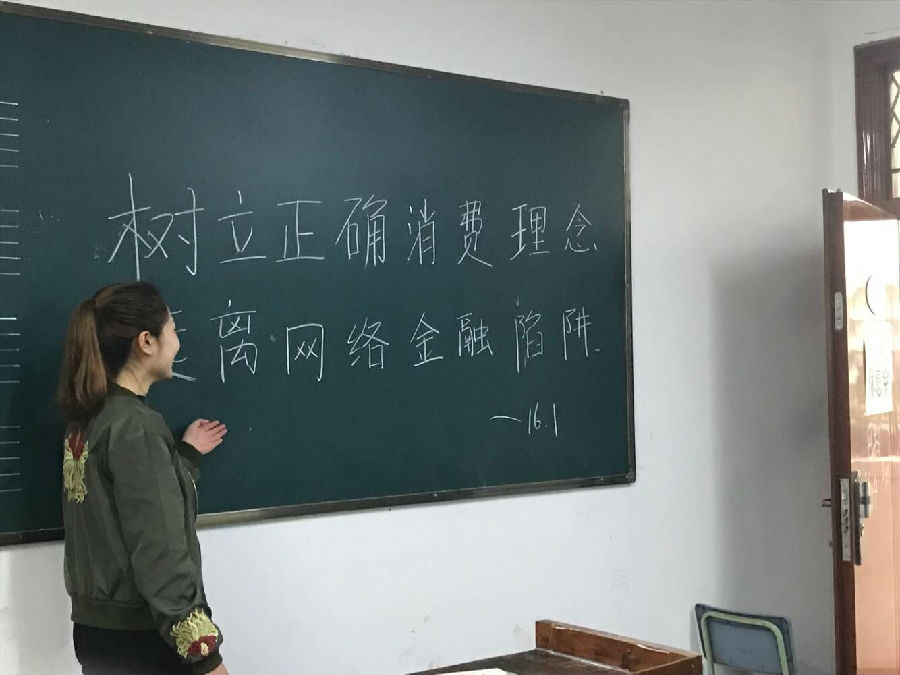 树立正确消费理念
离网络金融陷阱
一16.1
休息室